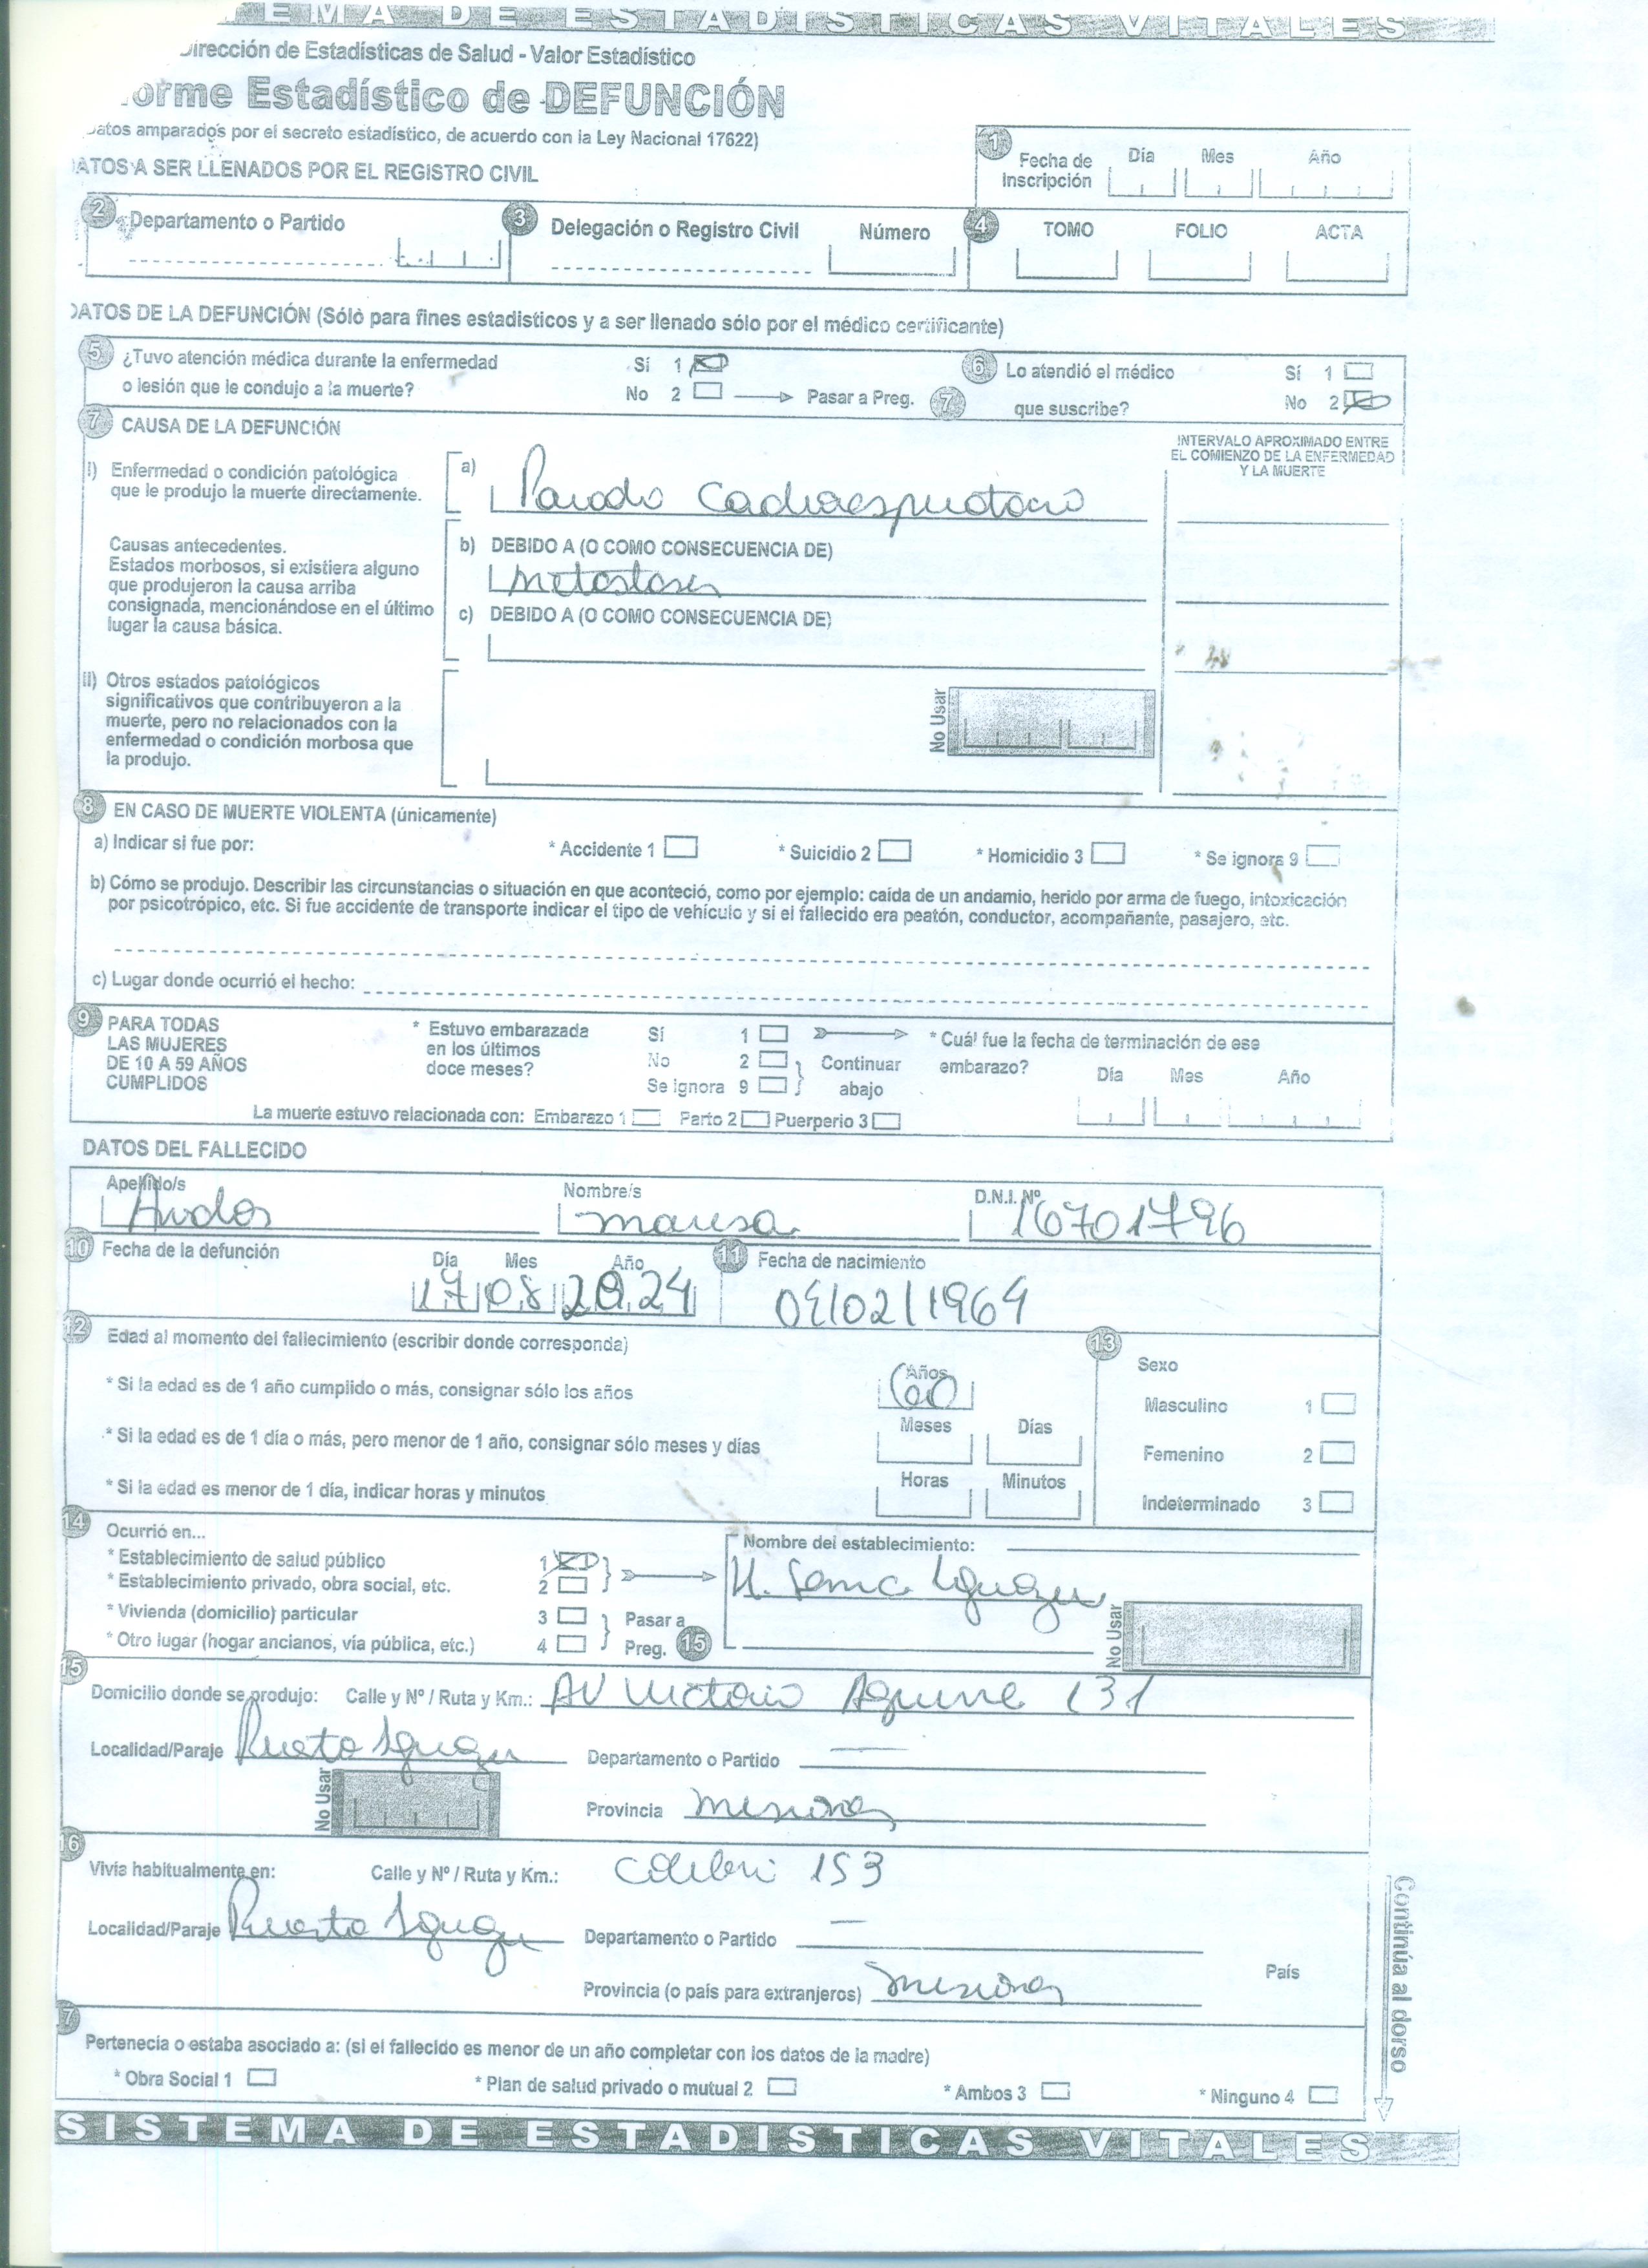 EMA DE ESTADISTICAS VITALES
Dirección de Estadísticas de Salud - Valor Estadístico
orme Estadístico de DEFUNCIÓN
Datos amparados por el secreto estadístico, de acuerdo con la Ley Nacional 17622)
DATOS A SER LLENADOS POR EL REGISTRO CIVIL
1 Fecha de Inscripción Día Mes Año
2 Departamento o Partido
3 Delegación o Registro Civil Número
4 TOMO FOLIO ACTA
DATOS DE LA DEFUNCIÓN (Sólo para fines estadisticos y a ser llenado sólo por el médico certificante)
5 ¿Tuvo atención médica durante la enfermedad
o lesión que le condujo a la muerte?
Sí 1
No 2 Pasar a Preg. 7
6 Lo atendió el médico
que suscribe?
Sí 1
No 2
7 CAUSA DE LA DEFUNCIÓN
INTERVALO APROXIMADO ENTRE
EL COMIENZO DE LA ENFERMEDAD
Y LA MUERTE
I) Enfermedad o condición patológica
que le produjo la muerte directamente.
a) Parado
Causas antecedentes.
Estados morbosos, si existiera alguno
que produjeron la causa arriba
consignada, mencionándose en el último
lugar la causa básica.
b) DEBIDO A (O COMO CONSECUENCIA DE)
metastasis
c) DEBIDO A (O COMO CONSECUENCIA DE)
II) Otros estados patológicos
significativos que contribuyeron a la
muerte, pero no relacionados con la
enfermedad o condición morbosa que
la produjo.
No Usar
8 EN CASO DE MUERTE VIOLENTA (únicamente)
a) Indicar si fue por: * Accidente 1 * Suicidio 2 * Homicidio 3 * Se ignora 9
b) Cómo se produjo. Describir las circunstancias o situación en que aconteció, como por ejemplo: caída de un andamio, herido por arma de fuego, intoxicación
por psicotrópico, etc. Si fue accidente de transporte indicar el tipo de vehículo y si el fallecido era peatón, conductor, acompañante, pasajero, etc.
c) Lugar donde ocurrió el hecho:
9 PARA TODAS
LAS MUJERES
DE 10 A 59 AÑOS
CUMPLIDOS
* Estuvo embarazada
en los últimos
doce meses?
Sí 1
No 2
Se ignora 9
Continuar
abajo
* Cuál fue la fecha de terminación de ese
embarazo? Día Mes Año
La muerte estuvo relacionada con: Embarazo 1 Parto 2 Puerperio 3
DATOS DEL FALLECIDO
Apellido/s Nombre/s D.N.I. Nº
marisa 16701796
10 Fecha de la defunción Día Mes Año
17 08 2024
11 Fecha de nacimiento
04/02/1964
12 Edad al momento del fallecimiento (escribir donde corresponda)
* Si la edad es de 1 año cumplido o más, consignar sólo los años
Años
60
* Si la edad es de 1 día o más, pero menor de 1 año, consignar sólo meses y días
Meses Días
* Si la edad es menor de 1 día, indicar horas y minutos
Horas Minutos
13 Sexo
Masculino 1
Femenino 2
Indeterminado 3
14 Ocurrió en...
* Establecimiento de salud público 1
* Establecimiento privado, obra social, etc. 2
* Vivienda (domicilio) particular 3
* Otro lugar (hogar ancianos, vía pública, etc.) 4
Pasar a
Preg. 15
Nombre del establecimiento:
H. Samic Iguazu
No Usar
15
Domicilio donde se produjo: Calle y Nº / Ruta y Km.: AV Victoria Aguirre 131
Localidad/Paraje Puerto Iguazu Departamento o Partido —
No Usar
Provincia misiones
16
Vivía habitualmente en: Calle y Nº / Ruta y Km.: Colibri 153
Localidad/Paraje Puerto Iguazu Departamento o Partido —
Provincia (o país para extranjeros) misiones País
17
Pertenecía o estaba asociado a: (si el fallecido es menor de un año completar con los datos de la madre)
* Obra Social 1 * Plan de salud privado o mutual 2 * Ambos 3 * Ninguno 4
Continúa al dorso
SISTEMA DE ESTADISTICAS VITALES